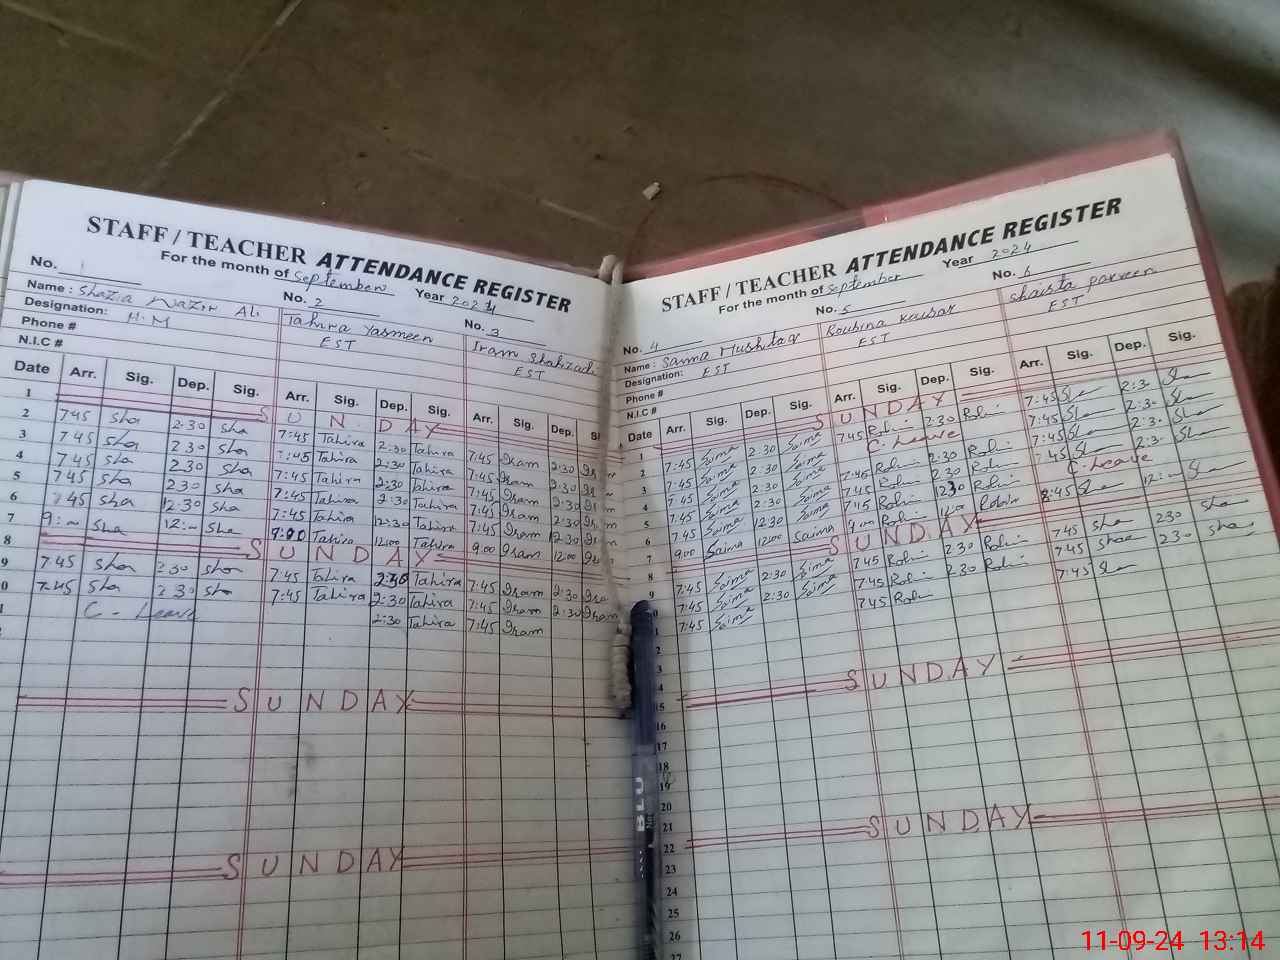 STAFF / TEACHER ATTENDANCE REGISTER
For the month of September Year 2024
No. 1 No. 2 No. 3
Name : Shazia Nazir Ali Tahira Yasmeen Iram Shahzadi
Designation: H.M EST EST
Phone #
N.I.C #
Date Arr. Sig. Dep. Sig. Arr. Sig. Dep. Sig. Arr. Sig. Dep.
1 SUNDAY
2 7:45 sha 2:30 sha 7:45 Tahira 2:30 Tahira 7:45 Iram 2:30
3 7:45 sha 2:30 sha 7:45 Tahira 2:30 Tahira 7:45 Iram 2:30
4 7:45 sha 2:30 sha 7:45 Tahira 2:30 Tahira 7:45 Iram 2:30
5 7:45 sha 2:30 sha 7:45 Tahira 2:30 Tahira 7:45 Iram 2:30
6 7:45 sha 12:30 sha 7:45 Tahira 12:30 Tahira 7:45 Iram 12:30
7 9:- sha 12:- sha 9:00 Tahira 12:00 Tahira 9:00 Iram 12:00
8 SUNDAY
9 7:45 sha 2:30 sha 7:45 Tahira 2:30 Tahira 7:45 Iram 2:30
7:45 sha 2:30 sha 7:45 Tahira 2:30 Tahira 7:45 Iram 2:30 Iram
C - Leave 2:30 Tahira 7:45 Iram
SUNDAY
SUNDAY
STAFF / TEACHER ATTENDANCE REGISTER
For the month of September Year 2024
No. 4 No. 5 No. 6
Name : Saima Mushtaq Roubina Kausar Shaista parveen
Designation: EST EST EST
Phone #
N.I.C #
Date Arr. Sig. Dep. Sig. Arr. Sig. Dep. Sig. Arr. Sig. Dep. Sig.
1 SUNDAY
2 7:45 Saima 2:30 Saima 7:45 2:30 7:45 2:3-
3 7:45 Saima 2:30 Saima C. Leave 7:45 2:3-
4 7:45 Saima 2:30 Saima 7:45 2:30 7:45 2:3-
5 7:45 Saima 2:30 Saima 7:45 2:30 7:45 2:3-
6 7:45 Saima 12:30 Saima 7:45 12:30 C. Leave
7 9:00 Saima 12:00 Saima 9:00 12:00 8:45 12:-
8 SUNDAY
9 7:45 Saima 2:30 Saima 7:45 2:30 7:45 sha 2:30 sha
7:45 Saima 2:30 Saima 7:45 2:30 7:45 2:30
1 7:45 Saima 7:45 7:45
2
3
4 SUNDAY
15
16
17
18
19
20
21 SUNDAY
22
23
24
25
26
27
BLU
11-09-24 13:14